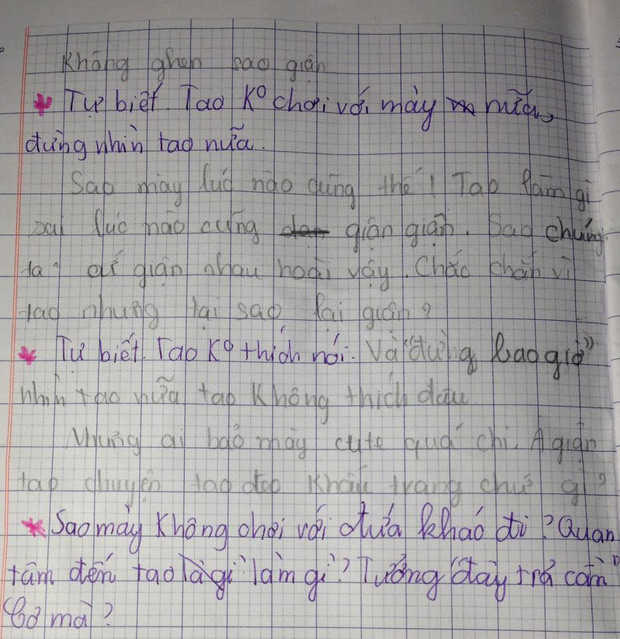 Không ghen sao giận
Tự biết. Tao K° chơi với mày nữa,
đừng nhìn tao nữa.
Sao mày lúc nào cũng thế! Tao làm gì
sai lúc nào cũng giận giận. Sao chúng
ta cứ giận nhau hoài vậy. Chắc chắn vì
tao nhưng tại sao lại giận?
Tự biết. Tao K° thích nói. Và "đừng bao giờ"
nhìn tao nữa tao không thích đâu
Nhưng ai bảo mày cute quá chi. À giận
tao chuyện tao đeo khẩu trang chứ gì?
Sao mày không chơi với đứa khác đi? Quan
tâm đến tao là gì làm gì? Tưởng đây trả cần
bơ mà?